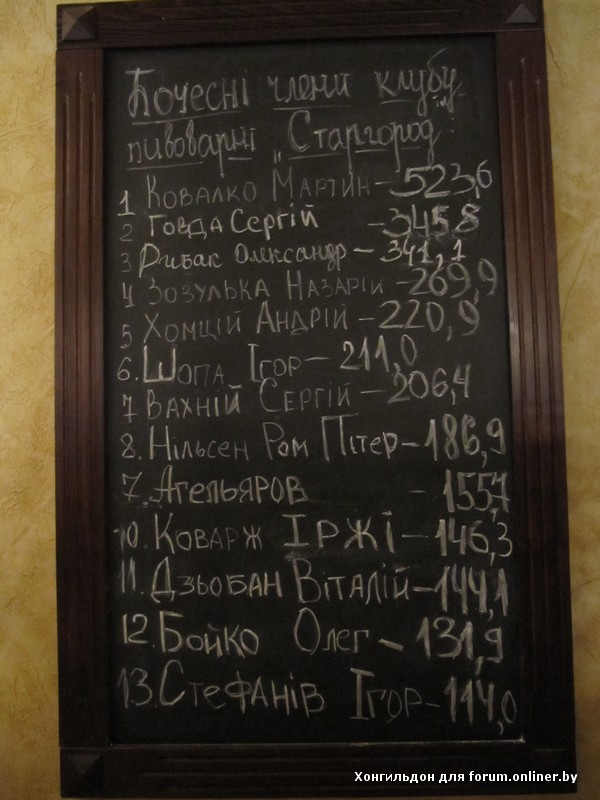 Почесні члени клубу
пивоварні „Старгород"
1 Ковалко Мартин – 523,6
2 Говда Сергій – 345,8
3 Рибак Олександр – 341,1
4 Зозулька Назарій – 269,9
5 Хомцій Андрій – 220,9
6. Шопа Ігор – 211,0
7 Вахній Сергій – 206,4
8. Нільсен Ром Пітер – 186,9
7. Агельяров – 155,7
10. Коварж Іржі – 146,3
11. Дзьобан Віталій – 144,1
12. Бойко Олег – 131,9
13. Стефанів Ігор – 114,0
Хонгильдон для forum.onliner.by